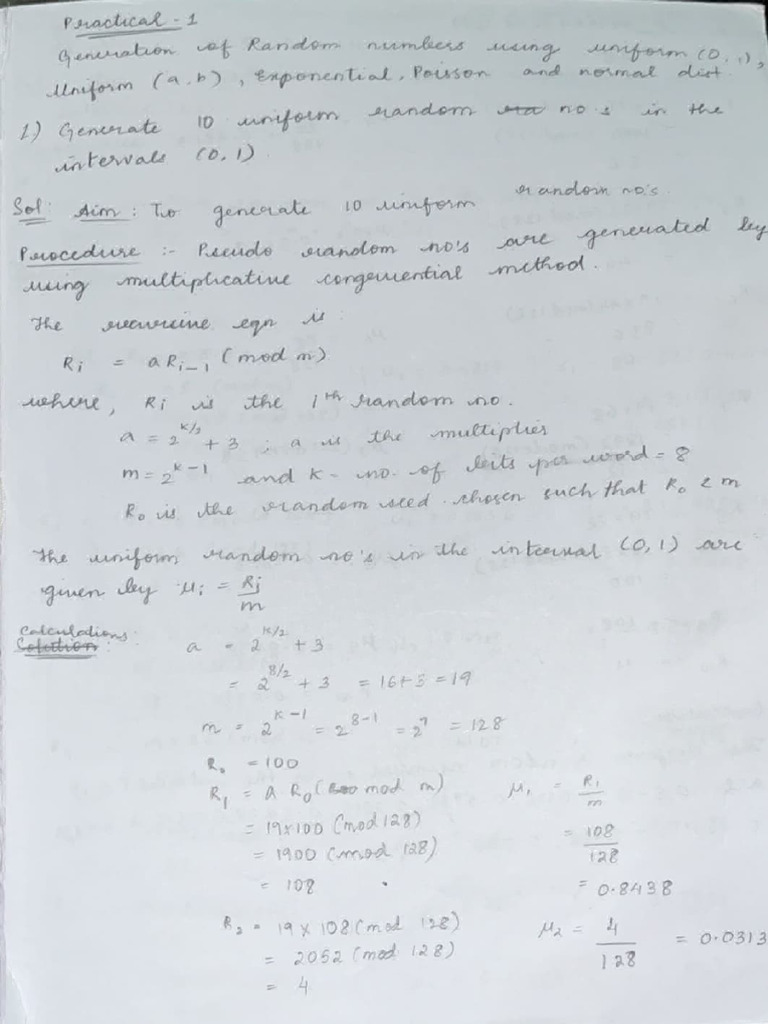 Practical - 1
Generation of Random numbers using uniform (0,1),
Uniform (a,b), Exponential, Poisson and normal dist.
1) Generate 10 uniform random no's in the
intervals (0,1)
Sol: Aim : To generate 10 uniform random no's.
Procedure :- Pseudo random no's are generated by
using multiplicative congruential method.
The recursive eqn is
Ri = a Ri-1 (mod m)
where, Ri is the ith random no.
a = 2^k/2 + 3 ; a is the multiplier
m = 2^k-1 and k - no. of bits per word = 8
R0 is the random seed chosen such that R0 < m
The uniform random no's in the interval (0,1) are
given by ui = Ri/m
Calculations:
a = 2^k/2 + 3
= 2^8/2 + 3 = 16+3 = 19
m = 2^k-1 = 2^8-1 = 2^7 = 128
R0 = 100
R1 = a R0 (mod m) μ1 = R1/m
= 19×100 (mod 128) = 108/128
= 1900 (mod 128)
= 108 = 0.8438
R2 = 19 × 108 (mod 128) μ2 = 4/128 = 0.0313
= 2052 (mod 128)
= 4